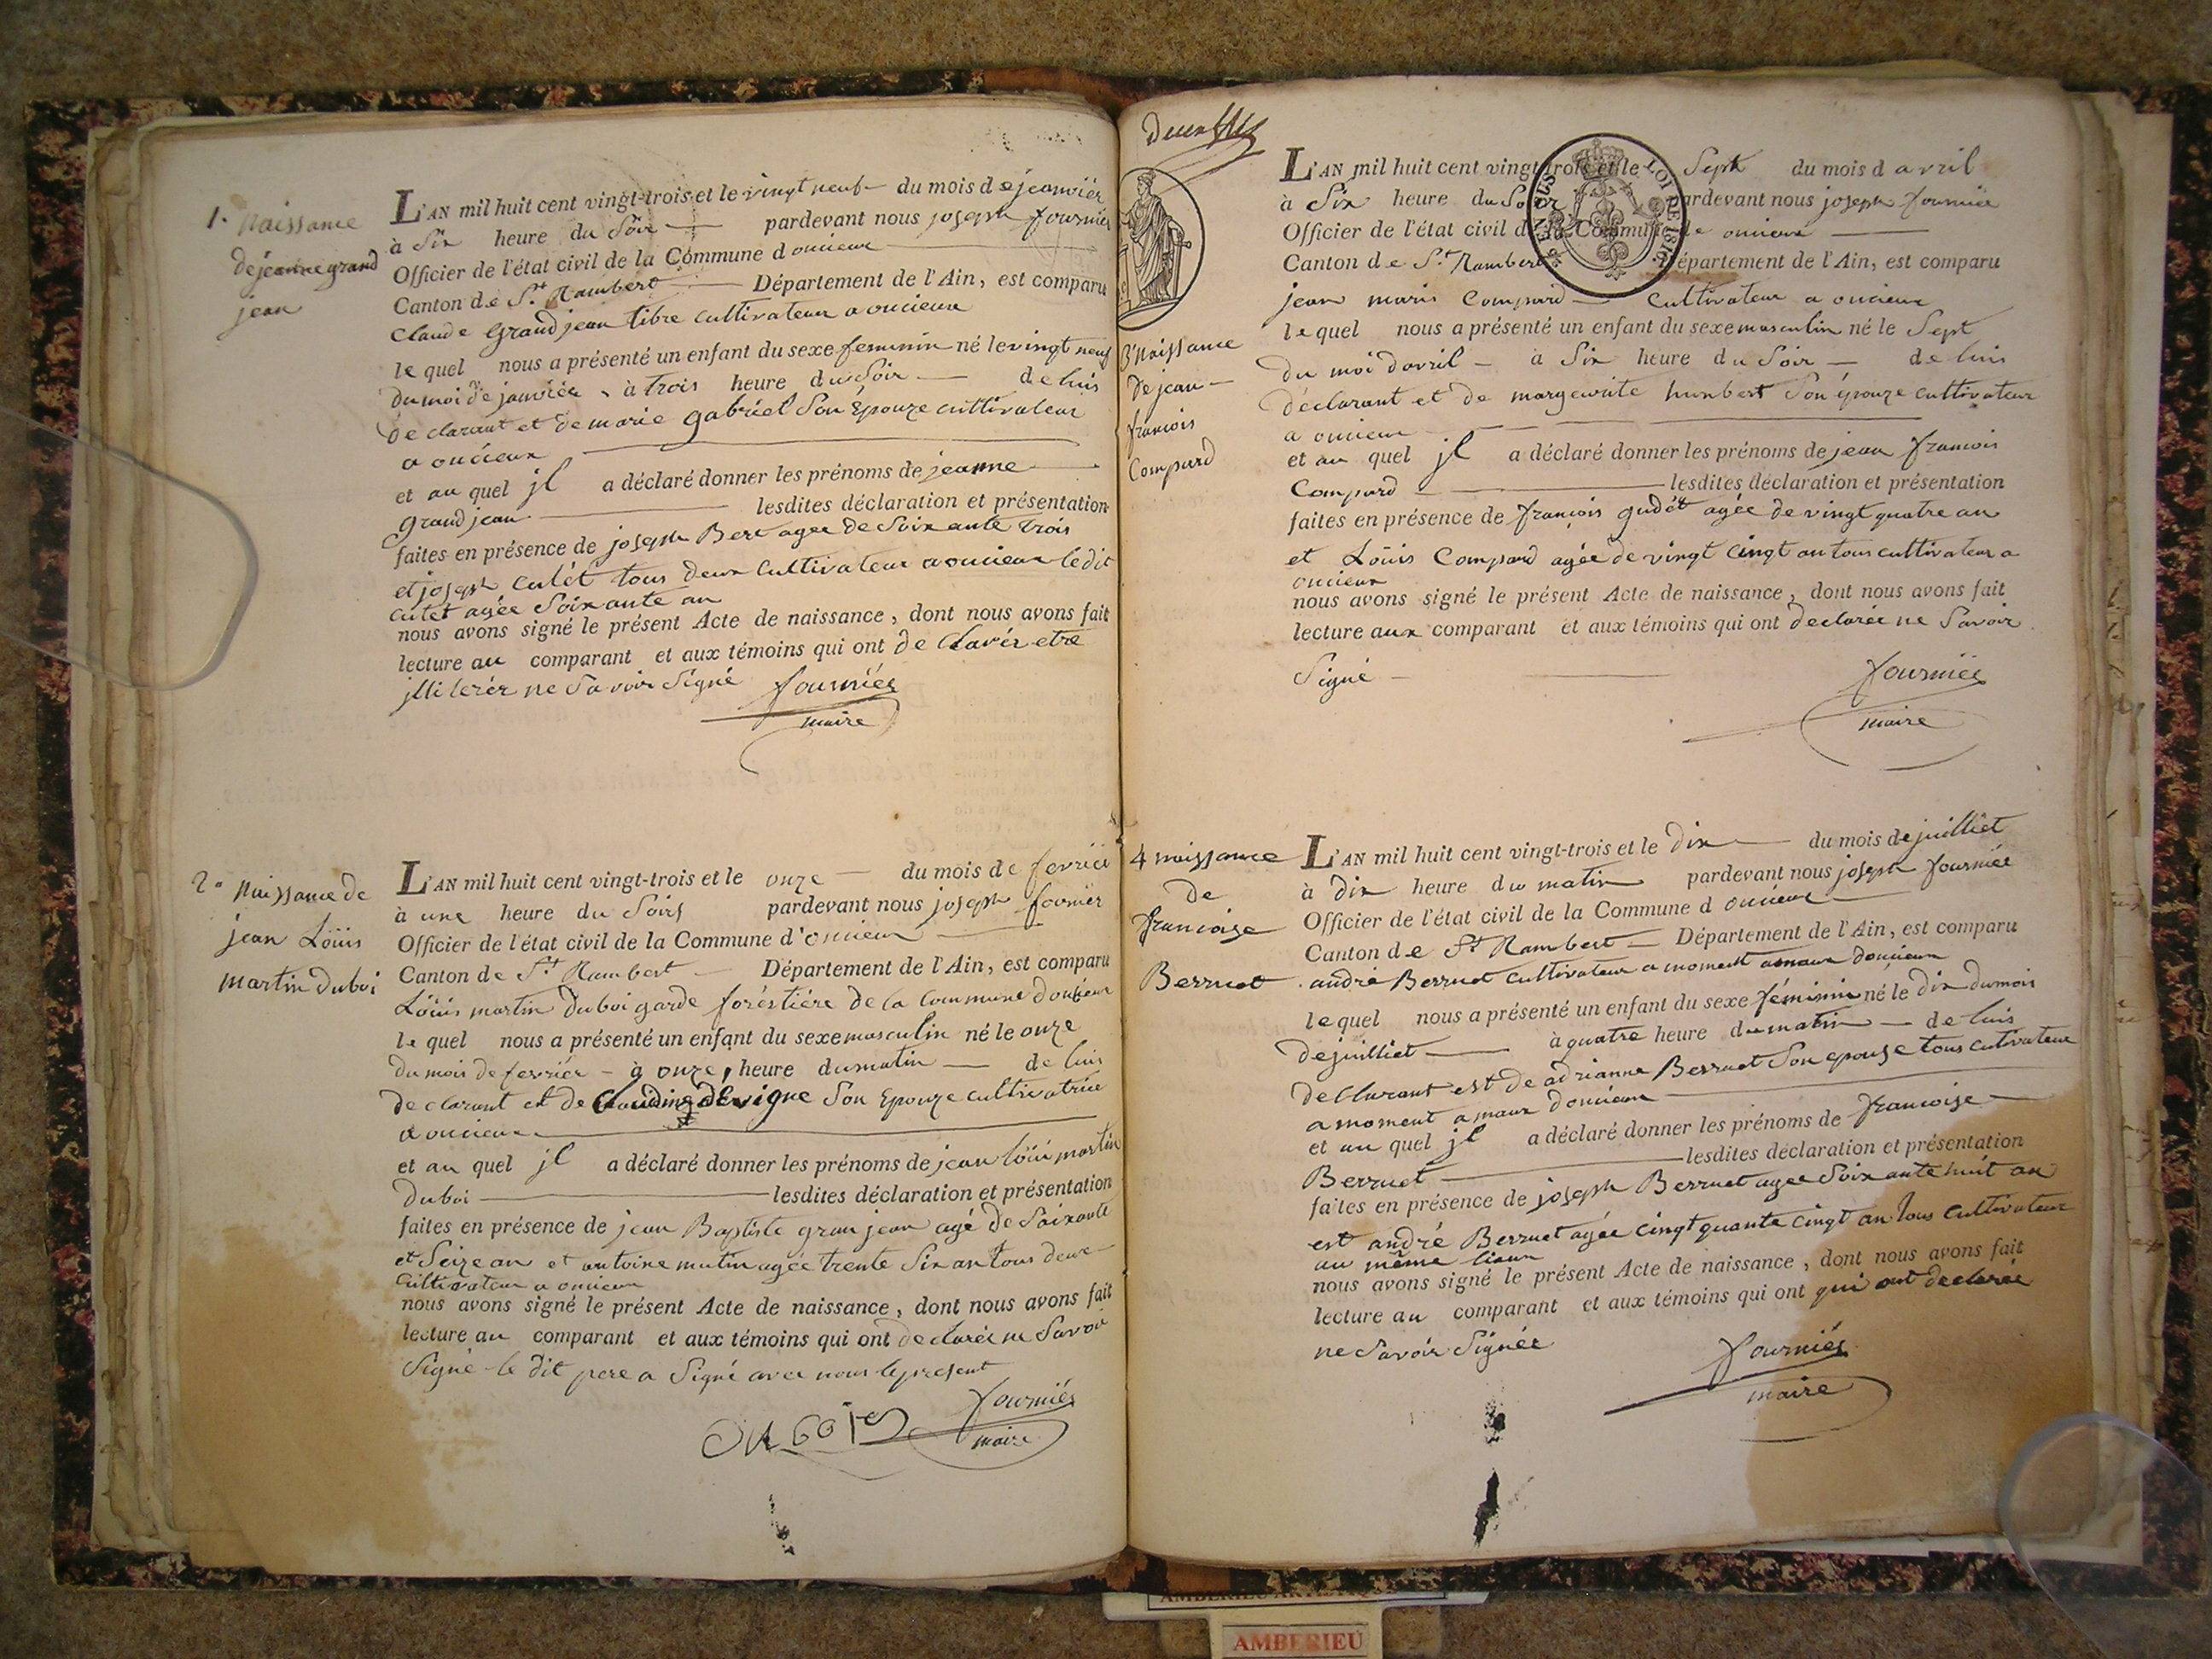 1. Naissance
de jeanne grand
jean
L'AN mil huit cent vingt-trois et le vingt neuf du mois de jeanviér
à Six heure du Soir pardevant nous joseph fournier
Officier de l'état civil de la Commune d oncieux
Canton de St. Rambert Département de l'Ain, est comparu
Claude Grandjean libre cultivateur a oncieux
le quel nous a présenté un enfant du sexe feminin né le vingt neuf
du moi de janviér à trois heure du Soir de luis
declarant et de marie gabriel Son Epouze cultivateur
a oncieux
et au quel jl a déclaré donner les prénoms de jeanne
grand jean lesdites déclaration et présentation
faites en présence de joseph Bert agee de Soixante trois
et joseph cutét tous deux Cultivateur a oncieux le dit
cutet agée Soixante an
nous avons signé le présent Acte de naissance, dont nous avons fait
lecture au comparant et aux témoins qui ont de claréz etre
jlliterér ne Savoir Signé fourniér
maire
2° Naissance de
jean Loüis
martin duboi
L'AN mil huit cent vingt-trois et le onze du mois de fevriér
à une heure du Soirs pardevant nous joseph fourniér
Officier de l'état civil de la Commune d'oncieux
Canton de St. Rambert Département de l'Ain, est comparu
Loüis martin duboi garde foréstiére de la Commune doncieux
le quel nous a présenté un enfant du sexe masculin né le onze
du mois de fevriér à onze, heure du matin de luis
declarant et de Claudine dEvigne Son Epouze cultivatrice
a oncieux
et au quel jl a déclaré donner les prénoms de jean loüi martin
duboi lesdites déclaration et présentation
faites en présence de jean Baptiste gran jean agé de Soixante
et Seize an et antoine mutin agée trente Six an tous deux
cultivateur a oncieux
nous avons signé le présent Acte de naissance, dont nous avons fait
lecture au comparant et aux témoins qui ont declaréz ne Savoir
Signé le dit pere a Signé avec nous le present
fourniér
Dubois maire
deux
3 Naissance
de jean
francois
Compard
L'AN mil huit cent vingt-trois et le Sept du mois d avril
à Six heure du Soir pardevant nous joseph fourniér
Officier de l'état civil de la Commune de oncieux
Canton de St. Rambert Département de l'Ain, est comparu
jean marie Compard Cultivateur a oncieux
le quel nous a présenté un enfant du sexe masculin né le Sept
du moi d'avril à Six heure du Soir de luis
déclarant et de margeurite humbert Son épouze cultivateur
a oncieux
et au quel jl a déclaré donner les prénoms de jean francois
Compard lesdites déclaration et présentation
faites en présence de françois gudét agée de vingt quatre an
et Loüis Compard agée de vingt cingt an tous cultivateur a
oncieux
nous avons signé le présent Acte de naissance, dont nous avons fait
lecture aux comparant et aux témoins qui ont declaréz ne Savoir
Signé
fourniér
maire
TIMBRE ROYAL
LOI DE 1816.
4 naissance
de
francoise
Berruet
L'AN mil huit cent vingt-trois et le dix du mois de juilliét
à dix heure du matin pardevant nous joseph fourniér
Officier de l'état civil de la Commune d oncieux
Canton de St. Rambert Département de l'Ain, est comparu
andré Berruet cultivateur a moment doncieux
le quel nous a présenté un enfant du sexe féminin né le dix du mois
de juilliet à quatre heure du matin de luis
decllarant est de adrianne Berruet Son epouse tous cutivateur
a moment a maux doncieux
et au quel jl a déclaré donner les prénoms de francoise
Berruet lesdites déclaration et présentation
faites en présence de joseph Berruet agee Soixante huit an
est andré Berruet agée cingtquante cingt an tous cultivateur
au même lieux
nous avons signé le présent Acte de naissance, dont nous avons fait
lecture au comparant et aux témoins qui ont qui ont declaréz
ne Savoir Signéz
fourniér
maire
AMBERIEU